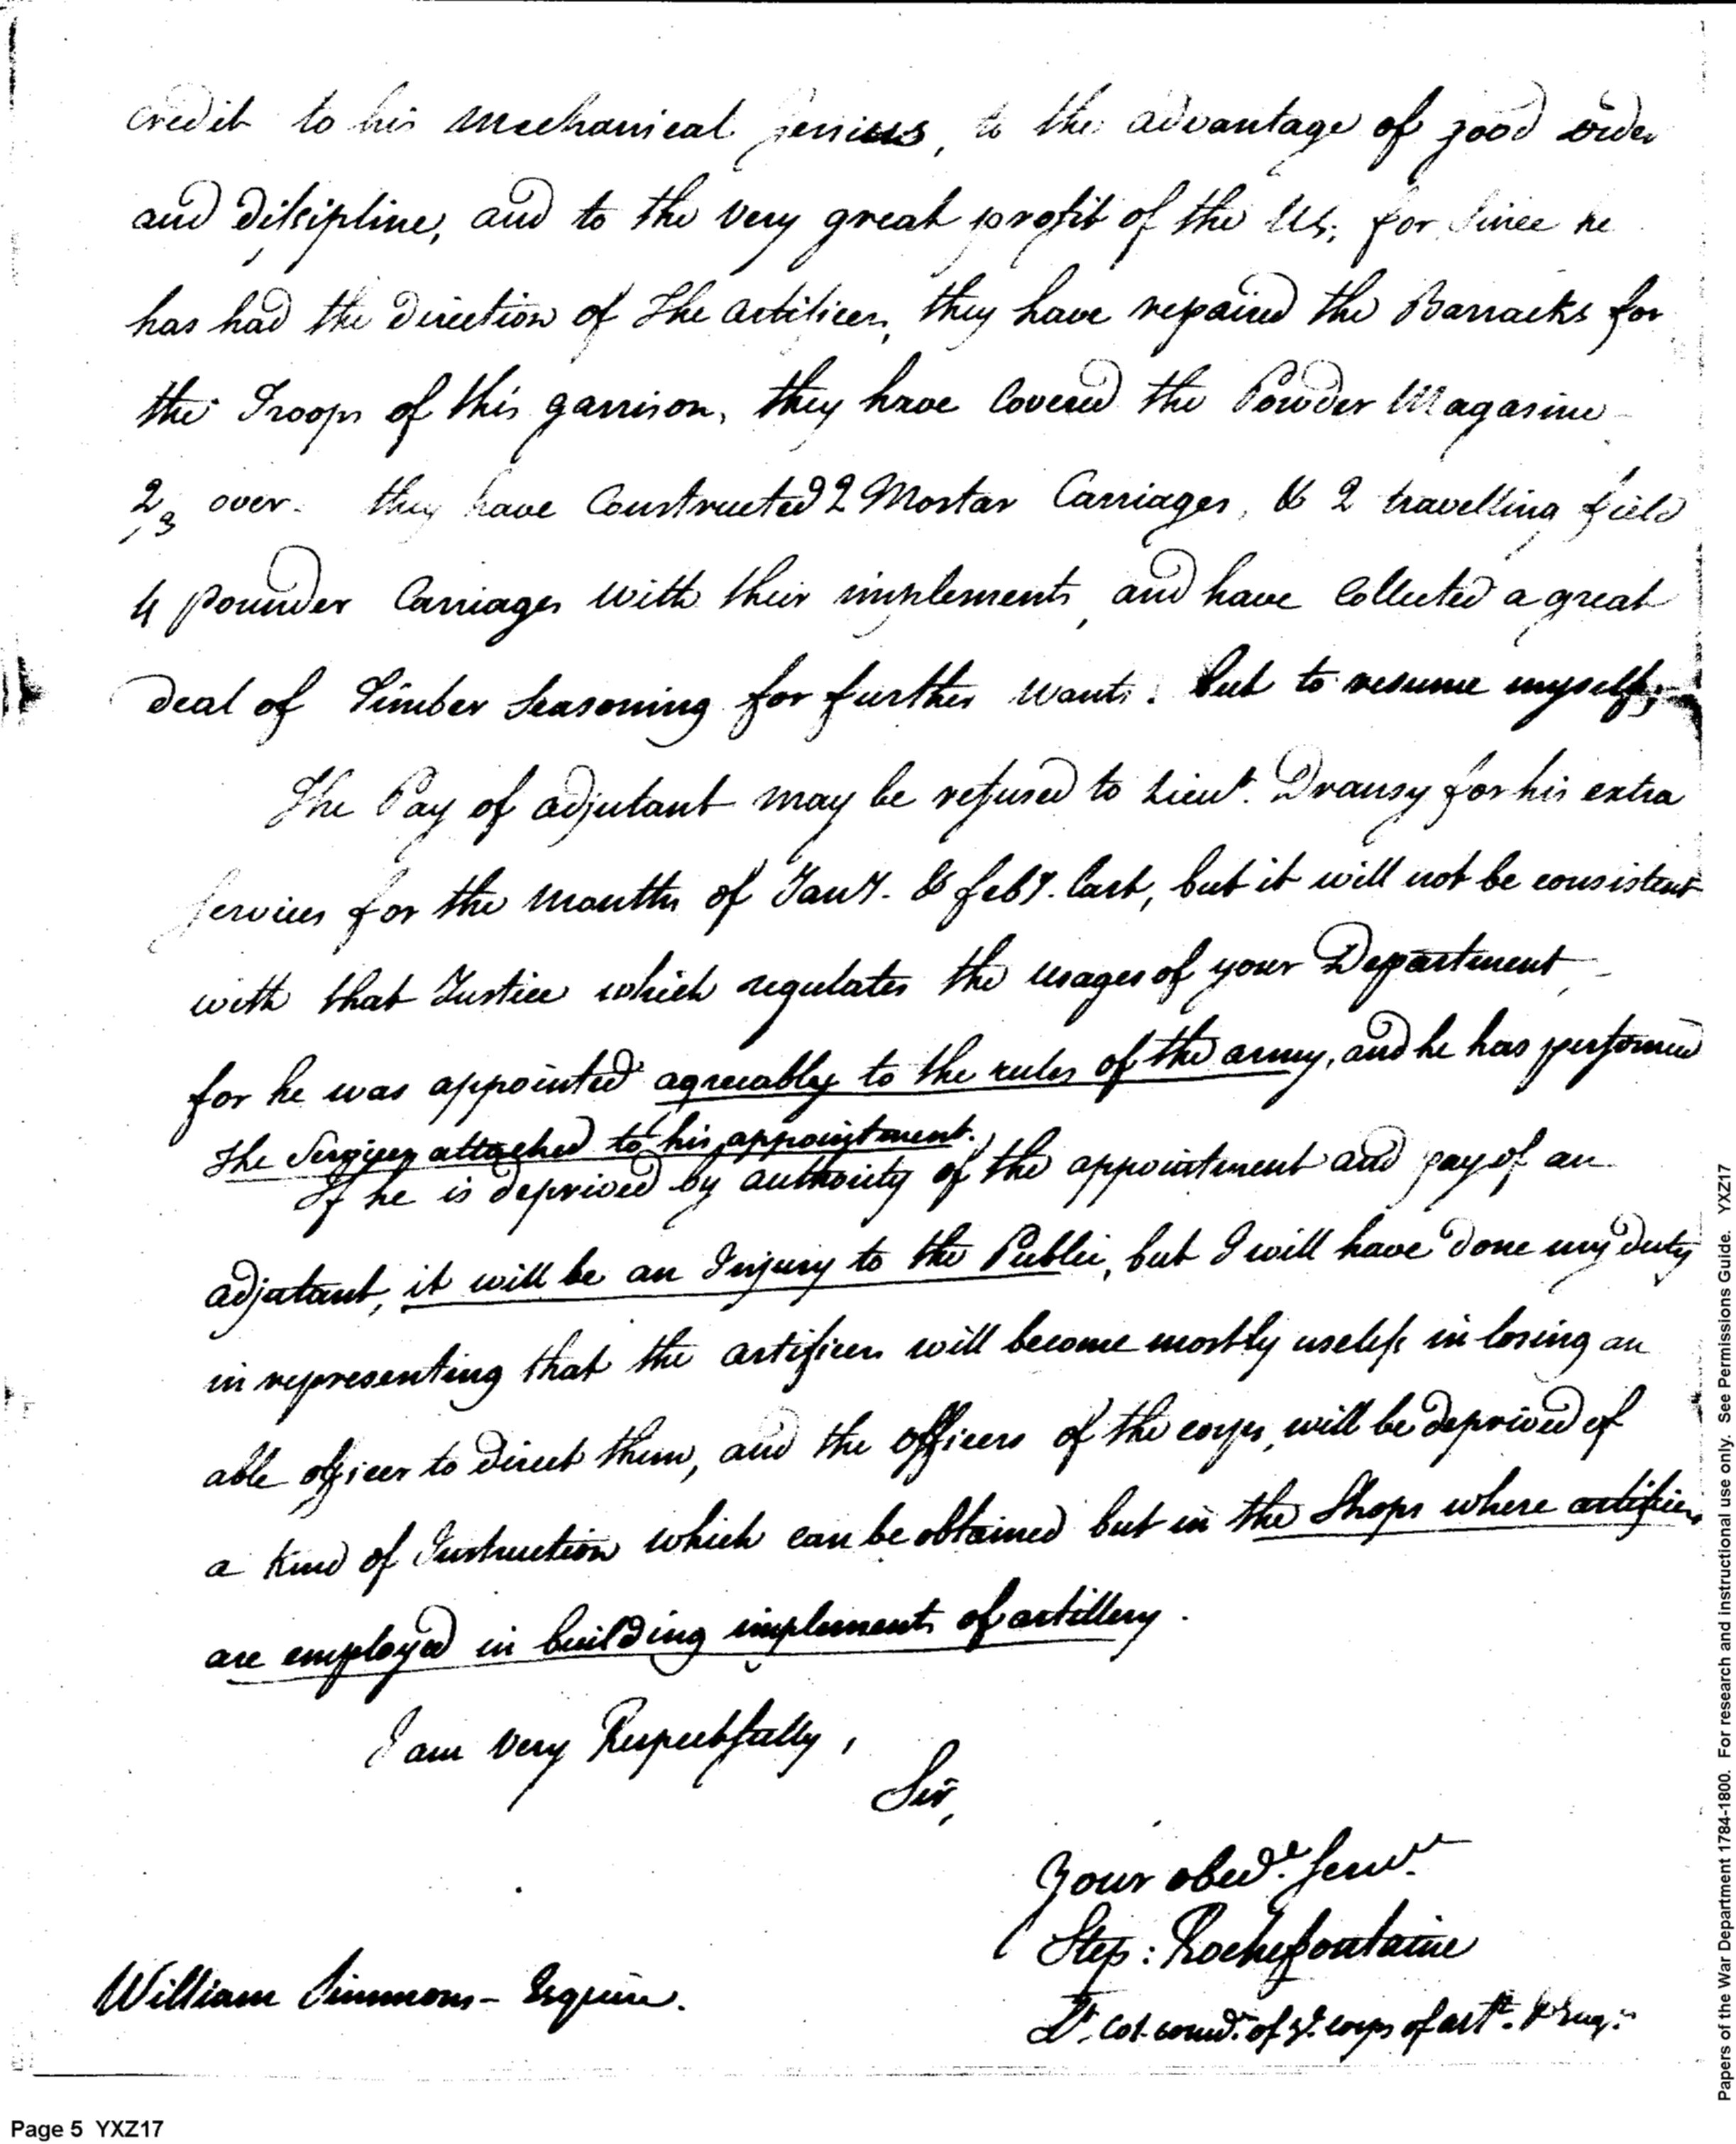 credit to his Mechanical Genius, to the advantage of good order
and discipline, and to the very great profit of the US; for since he
has had the direction of The artificers, they have repaired the Barracks for
the Troops of this garrison, they have Covered the Powder Magasine
2/3 over. they have Constructed 2 Mortar Carriages, & 2 travelling field
4 pounder Carriages with their implements, and have Collected a great
deal of Timber seasoning for further wants. but to resume myself;
The Pay of adjutant may be refused to Lieut. Dransy for his extra
services for the months of Jany. & feby. last, but it will not be consistent
with that Justice which regulates the usages of your Department,
for he was appointed agreeably to the rules of the army, and he has performed
the Services attached to his appointment.
If he is deprived by authority of the appointment and pay of an
adjutant, it will be an Injury to the Public, but I will have done my duty
in representing that the artificers will become mostly useless in losing an
able officer to direct them, and the officers of the corps, will be deprived of
a kind of Instruction which can be obtained but in the Shops where artificers
are employed in building implements of artillery.
I am very Respectfully,
Sir,
Your obedt. Servt.
Step: Rochefontaine
Lt. Col. comdt. of ye. corps of arty. & Engrs.
William Simmons - Esquire.
Page 5 YXZ17
Papers of the War Department 1784-1800. For research and instructional use only. See Permissions Guide. YXZ17